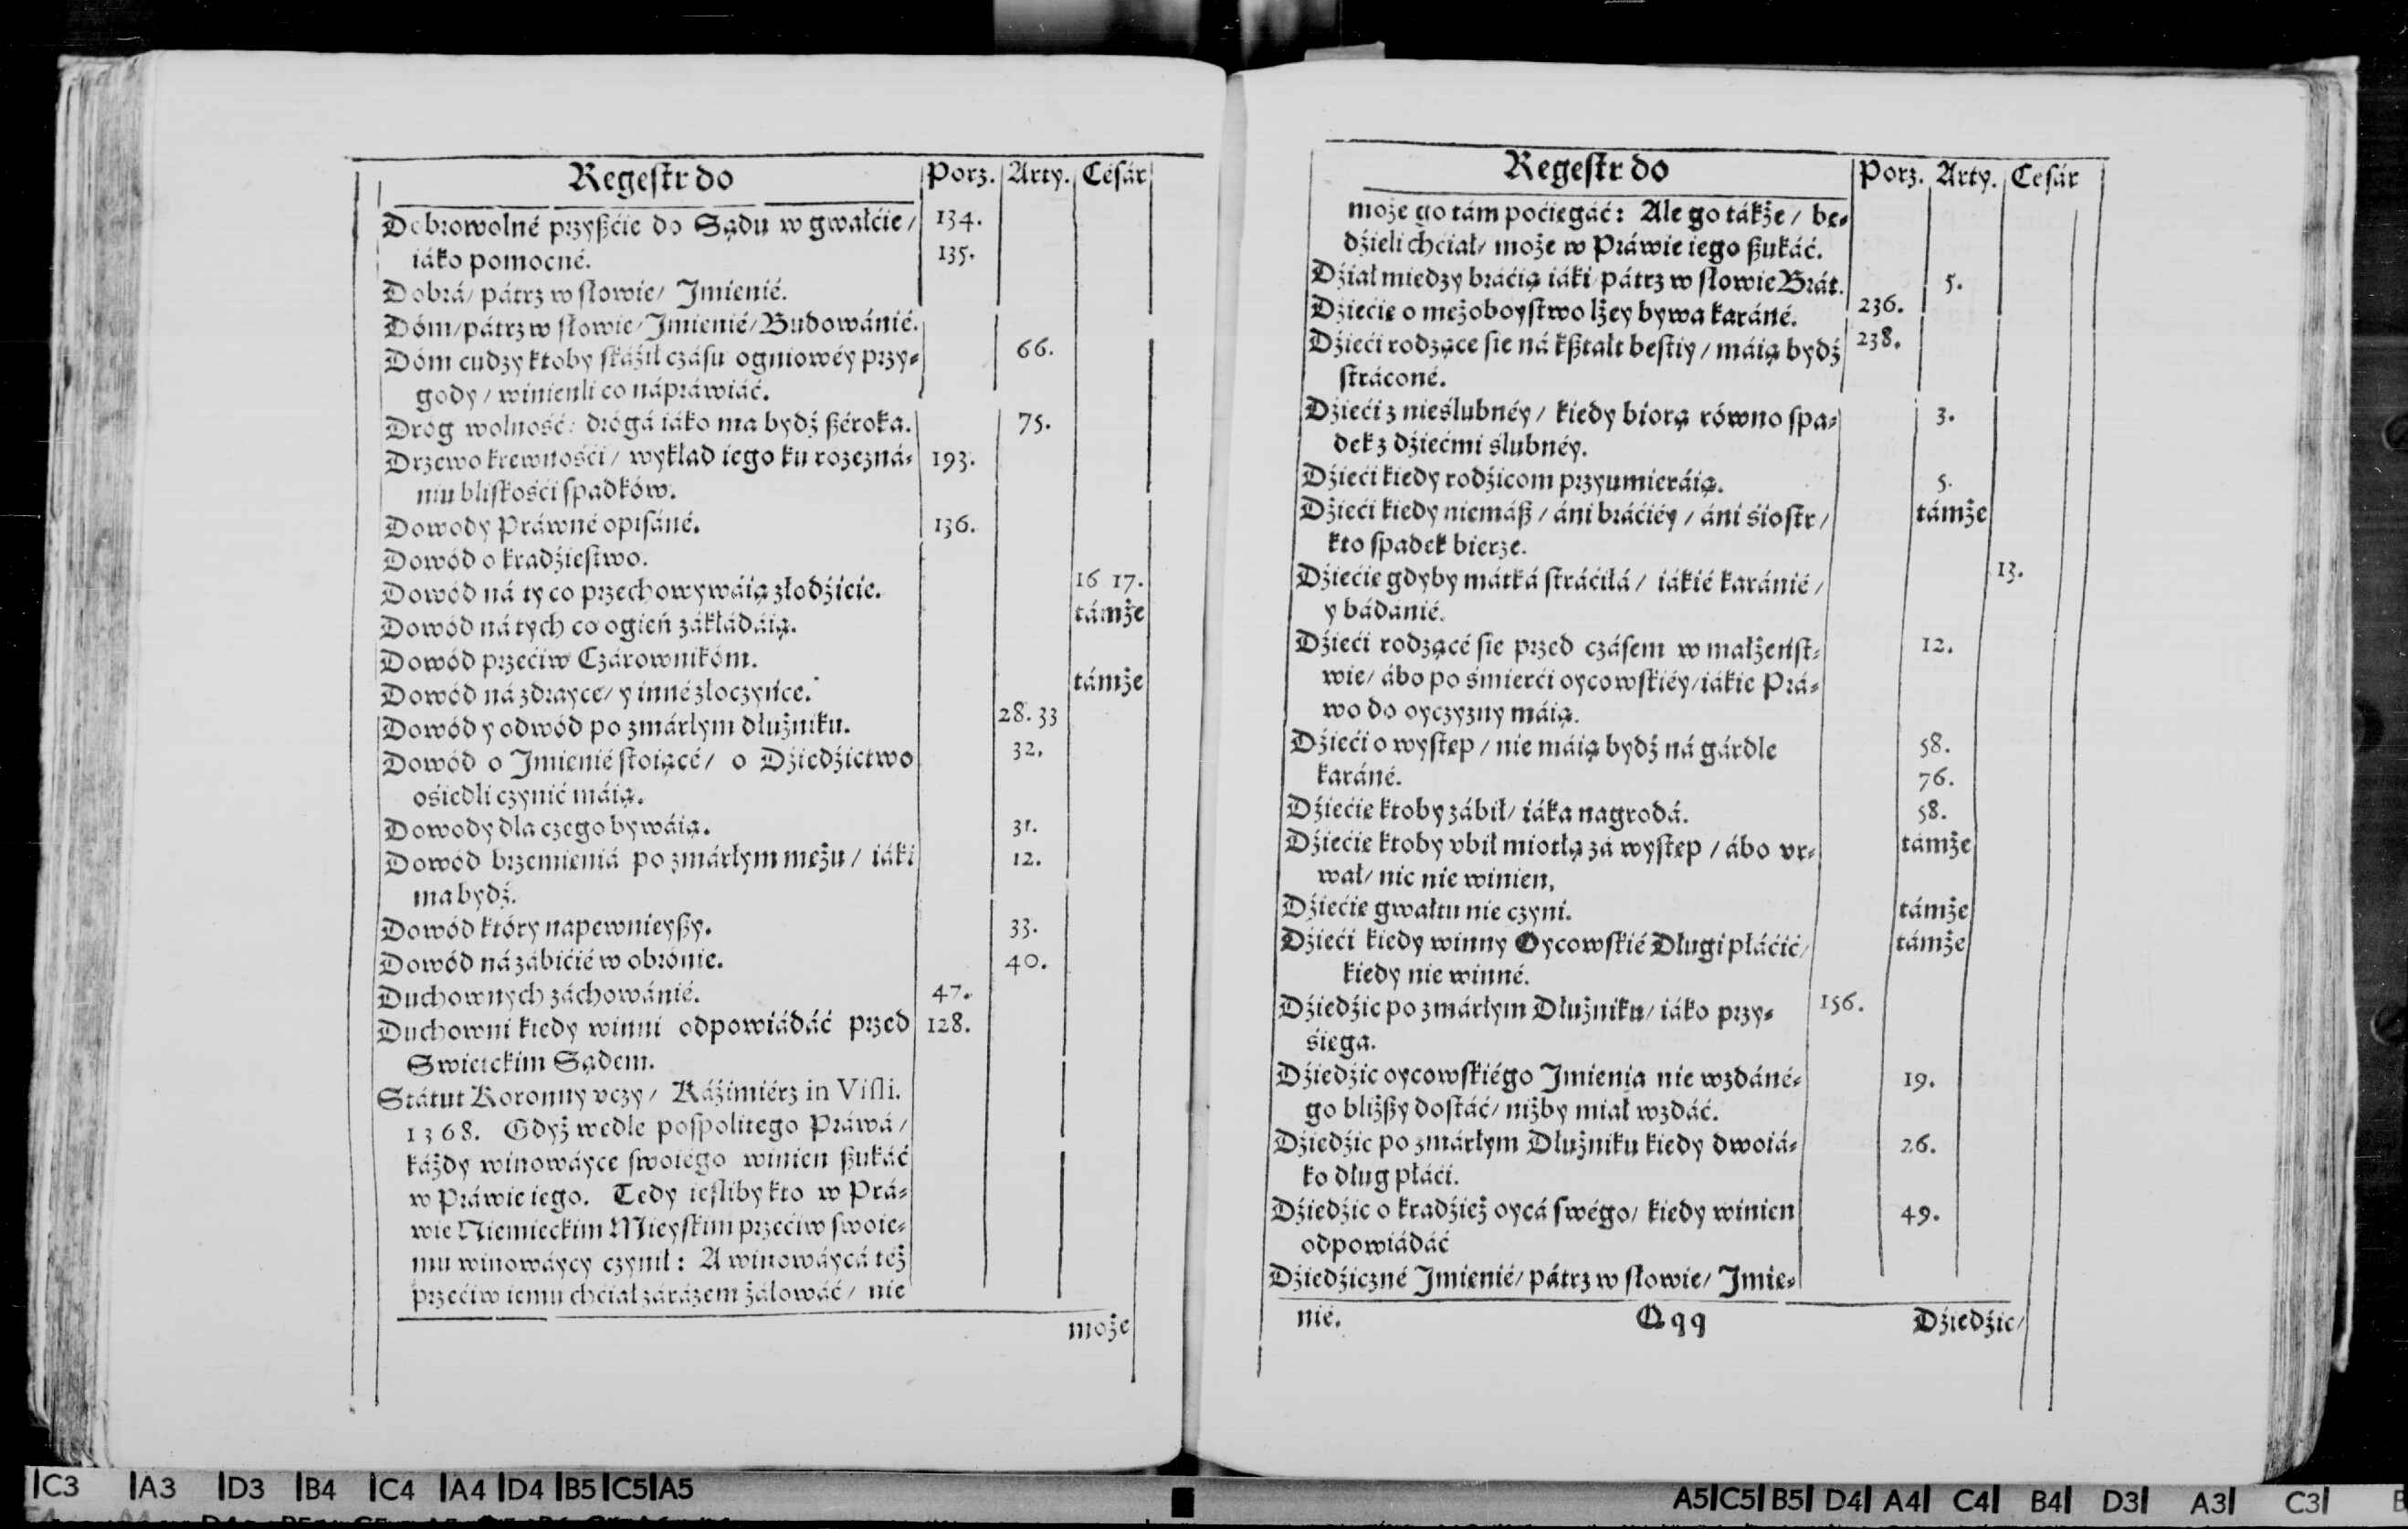 Regestr do Porz. Arty. Césár
Dobrowolné przyßćie do Sądu w gwałćie / 134.
iáko pomocné. 135.
Dobrá / pátrz w słowie / Jmienié.
Dóm / pátrz w słowie / Jmienié / Budowánié.
Dóm cudzy ktoby skáźił czásu ogniowéy przy⸗ 66.
gody / winienli co nápráwiáć.
Dróg wolność: drógá iáko ma bydź ßéroka. 75.
Drzewo krewnośći / wykład iego ku rozezná⸗ 193.
niu bliskośći spadków.
Dowody Práwné opisáné. 136.
Dowód o kradźiestwo.
Dowód ná ty co przechowywáią złodźieie. 16 17.
Dowód ná tych co ogień zákłádáią. támże
Dowód przećiw Czárownikóm.
Dowód ná zdrayce / y inné złoczyńce. támże
Dowód y odwód po zmárłym dłużniku. 28. 33
Dowód o Jmienié stoiącé / o Dźiedźictwo 32.
ośiedli czynić máią.
Dowody dla czego bywáią. 31.
Dowód brzemieniá po zmárłym mężu / iáki 12.
ma bydź.
Dowód który napewnieyßy. 33.
Dowód ná zábićié w obrónie. 40.
Duchownych záchowánié. 47.
Duchowni kiedy winni odpowiádáć przed 128.
Swietckim Sądem.
Státut Koronny vczy / Káźimiérz in Visli.
1368. Gdyż wedle pospolitego Práwá /
káżdy winowáyce swoiégo winien ßukáć
w Práwie iego. Tedy iesliby kto w Prá⸗
wie Niemieckim Mieyskim przećiw swoie⸗
mu winowáycy czynił: A winowáycá téż
przećiw iemu chćiał zárázem żáłowáć / nie
może
Regestr do Porz. Arty. Cesár
może go tám poćiegáć: Ale go tákże / bę⸗
dźieli chćiał / może w Práwie iego ßukáć.
Dźiał miedzy bráćią iáki / pátrz w słowie Brát. 5.
Dźiećię o mężoboystwo lżey bywa karáné. 236.
Dźieći rodzące sie ná kßtałt bestiy / máią bydź 238.
stráconé.
Dźieći z nieślubnéy / kiedy biorą równo spa⸗ 3.
dek z dźiećmi ślubnéy.
Dźieći kiedy rodźicom przyumieráią. 5.
Dźieći kiedy niemáß / áni bráćiéy / áni śiostr / támże
kto spadek bierze.
Dźiećie gdyby mátká stráćiłá / iákié karánié / 13.
y bádánié.
Dźieći rodzącé sie przed czásem w małżeńst⸗ 12.
wie / ábo po śmierći oycowskiéy / iákie Prá⸗
wo do oyczyzny máią.
Dźieći o występ / nie máią bydź ná gárdle 58.
karáné. 76.
Dźiećię ktoby zábił / iáka nagrodá. 58.
Dźiećię ktoby vbił miotłą zá występ / ábo vr⸗ támże
wał / nic nie winien,
Dźiećię gwałtu nie czyni. támże
Dźieći kiedy winny Oycowskié Długi płáćić / támże
kiedy nie winné.
Dźiedźic po zmárłym Dłużniku / iáko przy⸗ 156.
śięga.
Dźiedźic oycowskiégo Jmieniá nie wzdáné⸗ 19.
go bliżßy dostáć / niżby miał wzdáć.
Dźiedźic po zmárłym Dłużniku kiedy dwoiá⸗ 26.
ko dług płáći.
Dźiedźic o kradźież oycá swégo / kiedy winien 49.
odpowiádáć
Dźiedźiczné Jmienié / pátrz w słowie / Jmie⸗
nié. Qqq Dźiedźic /
C3 A3 D3 B4 C4 A4 D4 B5 C5 A5
A5 C5 B5 D4 A4 C4 B4 D3 A3 C3